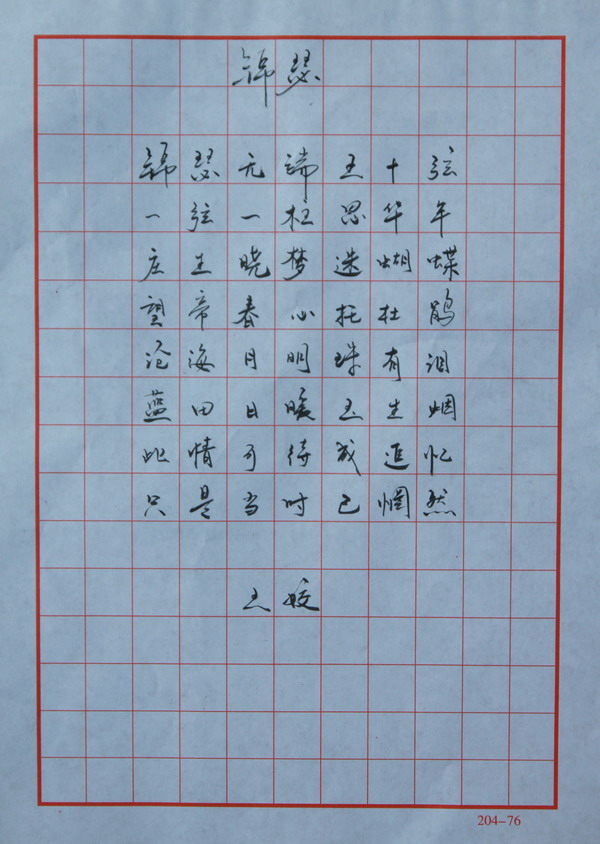 锦瑟
锦瑟无端五十弦
一弦一柱思华年
庄生晓梦迷蝴蝶
望帝春心托杜鹃
沧海月明珠有泪
蓝田日暖玉生烟
此情可待成追忆
只是当时已惘然
王姣
204-76